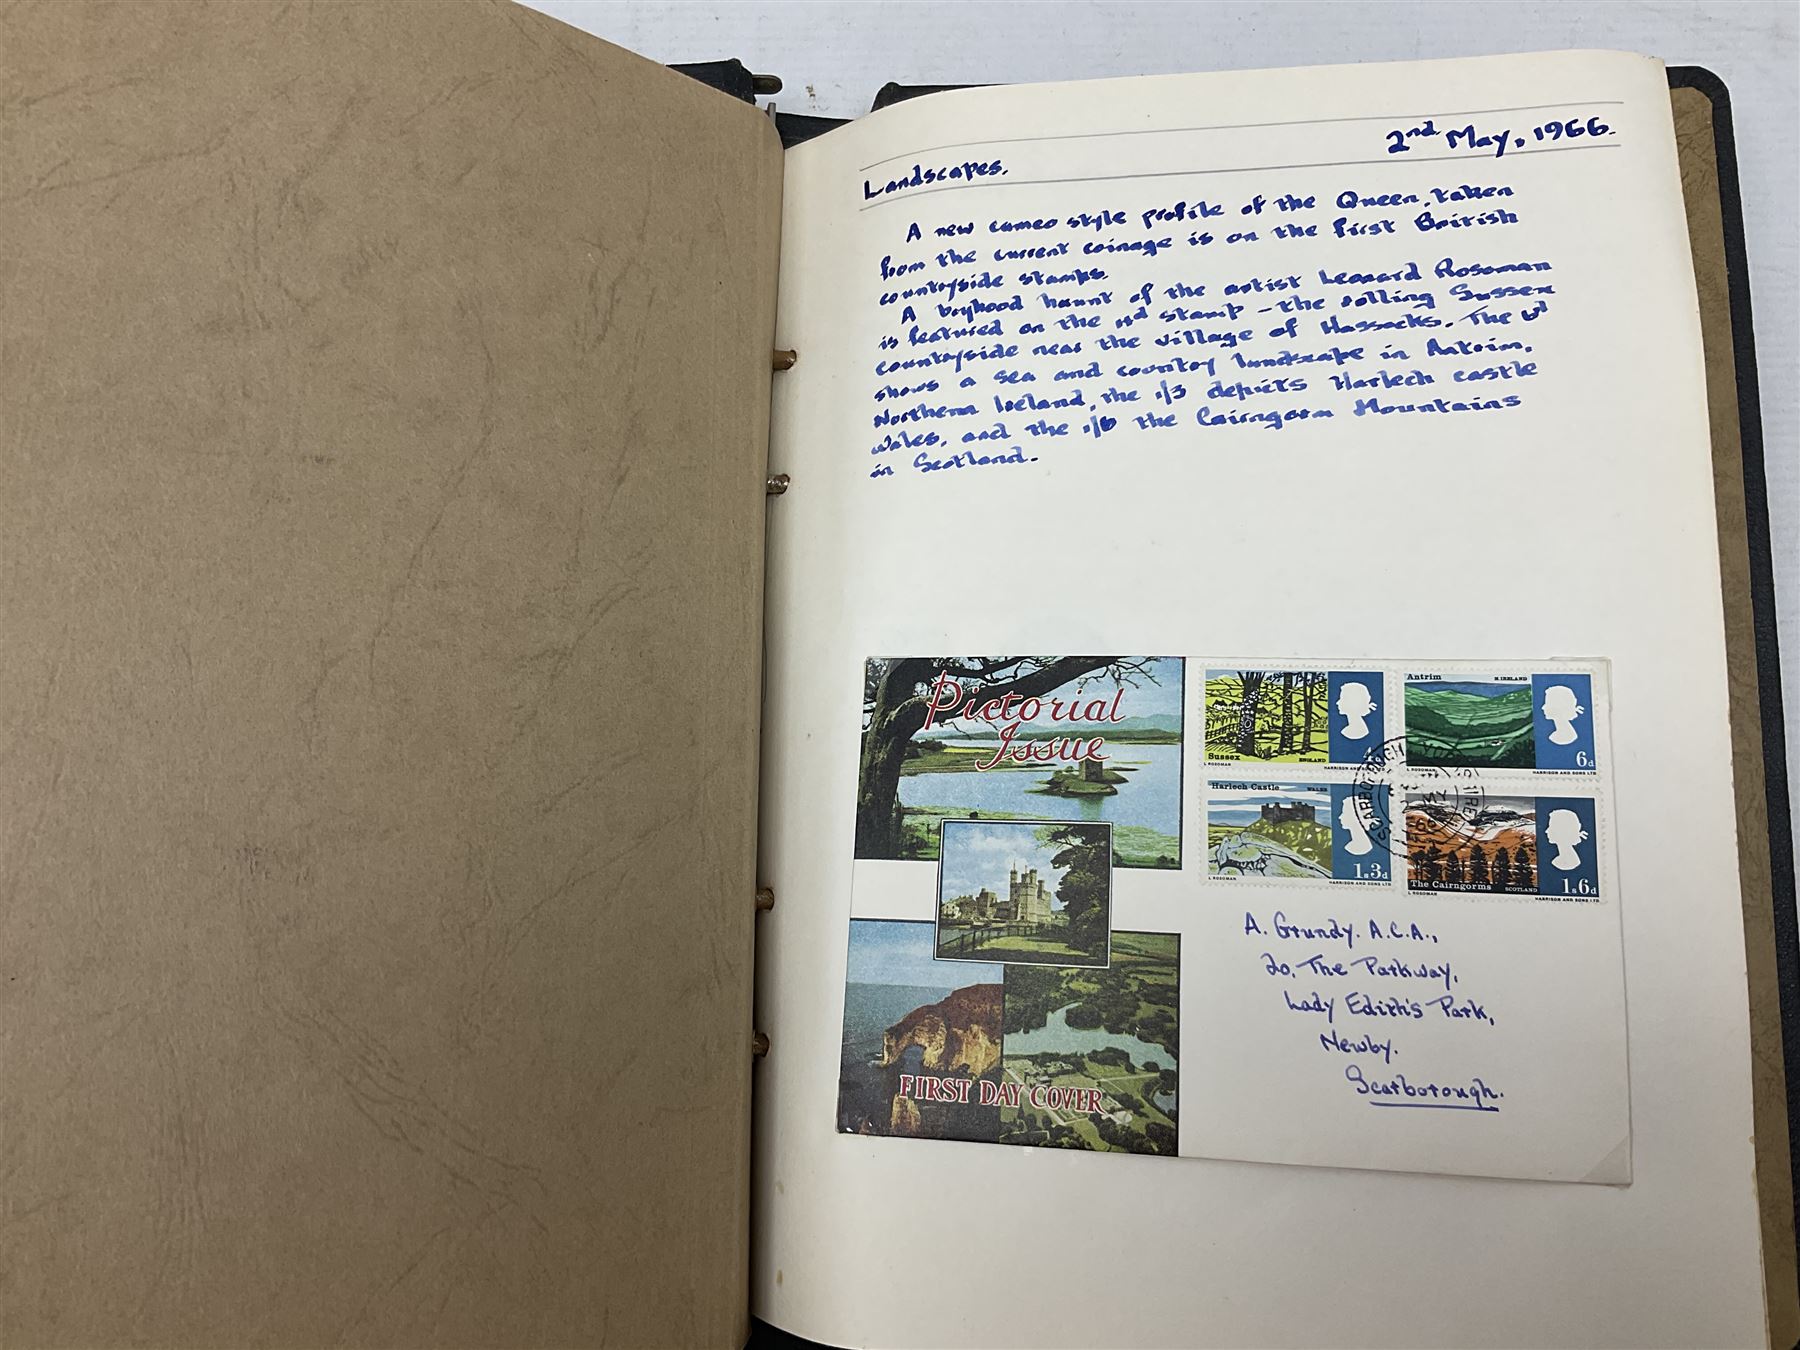 2nd May, 1966.
Landscapes.
A new cameo style profile of the Queen, taken
from the current coinage is on the first British
countryside stamps.
A boyhood haunt of the artist Leonard Rosoman
is featured on the 4d stamp - the rolling Sussex
countryside near the village of Hassocks. The 6d
shows a sea and country landscape in Antrim,
Northern Ireland, the 1/3 depicts Harlech castle
Wales, and the 1/6 the Cairngorm Mountains
in Scotland.
Pictorial
Issue
FIRST DAY COVER
Sussex
ENGLAND
L ROSOMAN
HARRISON AND SONS LTD
Antrim
N. IRELAND
6d
L ROSOMAN
HARRISON AND SONS LTD
Harlech Castle
WALES
1s3d
L ROSOMAN
HARRISON AND SONS LTD
The Cairngorms
SCOTLAND
1s6d
L ROSOMAN
HARRISON AND SONS LTD
SCARBOROUGH YORKSHIRE
A. Grundy. A.C.A.,
20, The Parkway,
Lady Edith's Park,
Newby.
Scarborough.